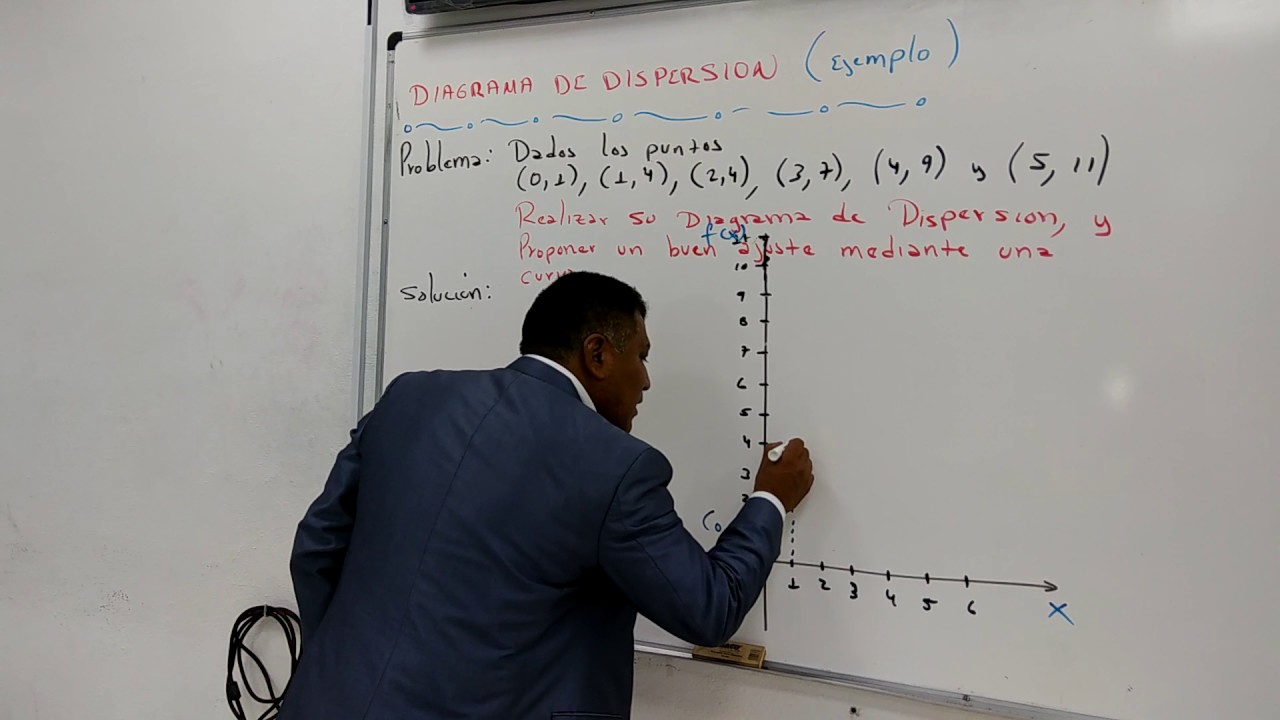 DIAGRAMA DE DISPERSION (Ejemplo)
Problema: Dados los puntos
(0,1), (1,4), (2,4), (3,7), (4,9) y (5,11)
Realizar su Diagrama de Dispersion, y
Proponer un buen ajuste mediante una
Solucion:
f(x)
10
9
8
7
6
5
4
3
2
(0
1 2 3 4 5 6
X